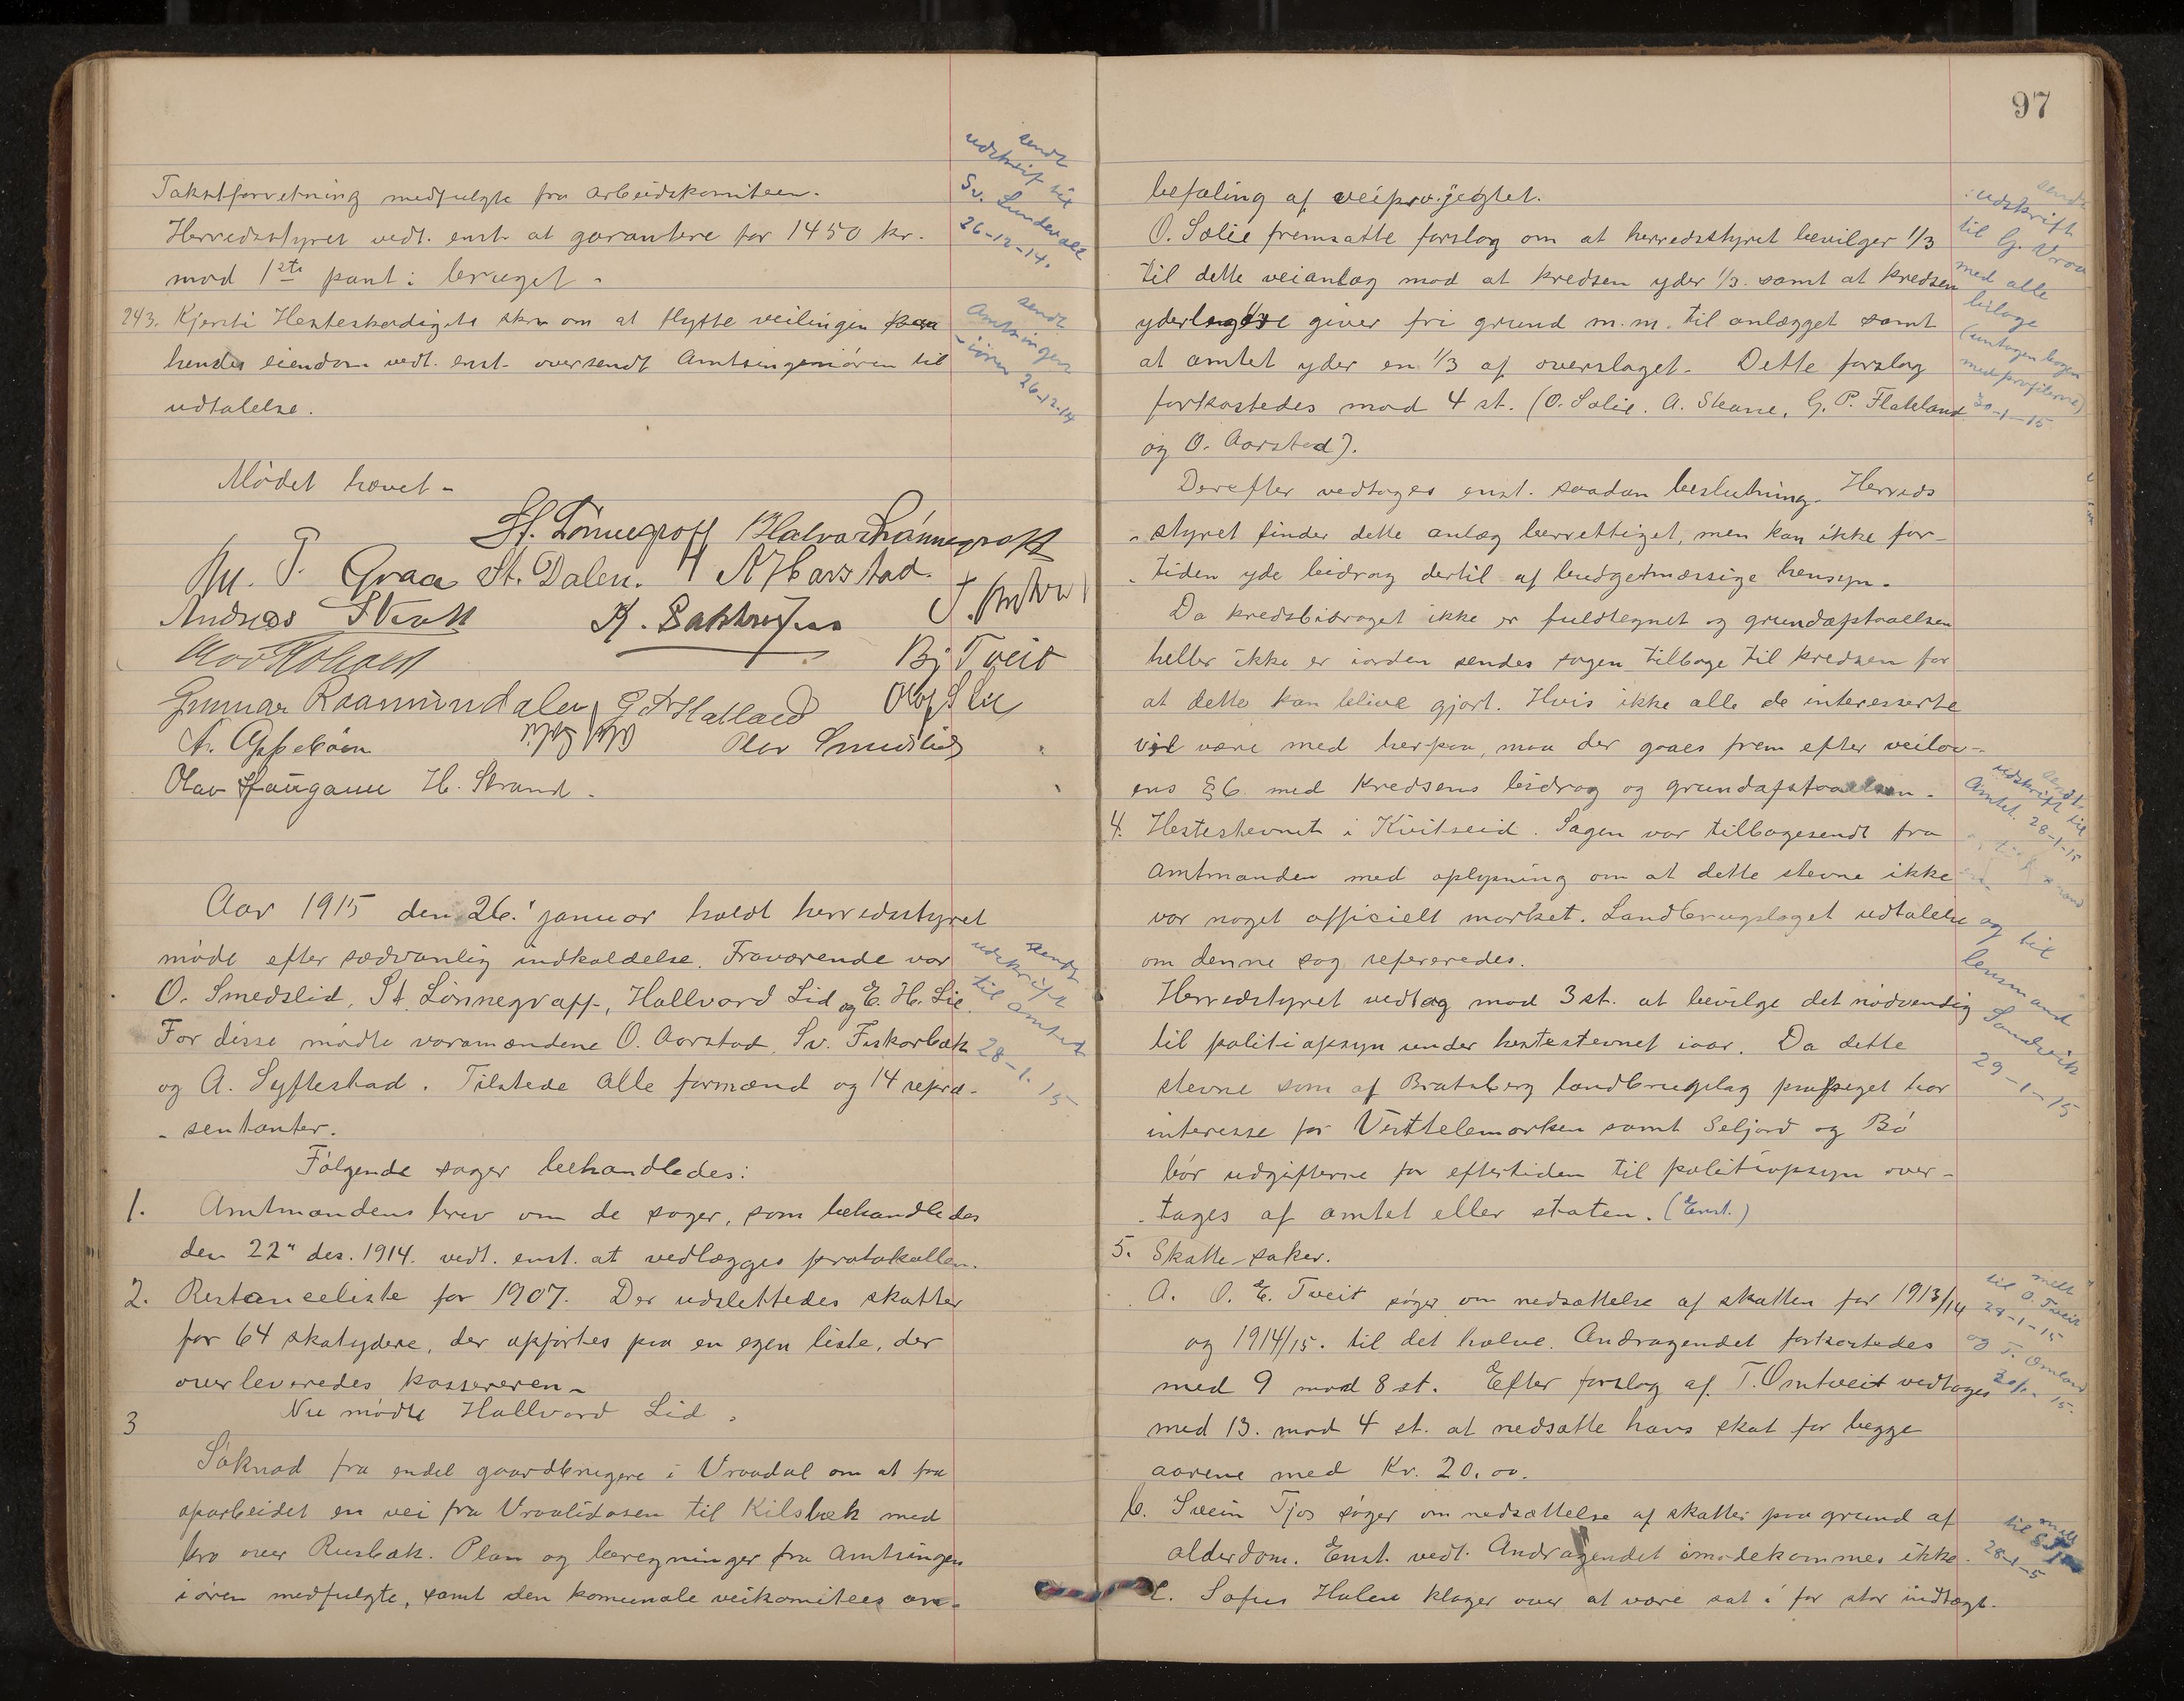 Takstforretning medfulgte fra arbeidskomiteen.
Herredsstyret vedt. enst. at garantere for 1450 kr.
mod 1ste pant i bruget.
243. Kjersti Hesteskodigets skr. om at flytte veilingen paa
hendes eiendom vedt. enst. oversendt Amtsingeniøren til
udtalelse.
sendt
udskrift til
Sv. Lundevall
26-12-14.
sendt
Amtsingen
-iøren 26-12-14
Mødet hævet -
St. Lønnegraff Halvor Lønnegraff
P. Graa St. Dalen. A Harstad.
Andreas
Bj Tveit
Gunnar Raamundalen
Olav Smedslid
Olav Haugann H. Strand.
Aar 1915 den 26. januar holdt herredsstyret
møde efter sædvanlig indkaldelse. Fraværende var
O. Smedslid, St. Lønnegraff, Hallvard Lid og E. H. Lie.
For disse mødte varamændene O. Aarstad, Sv. Fiskarbæk
og A. Syftestad. Tilstede alle formænd og 14 repræ-
- sentanter.
sendt
udskrift
til amtet
28-1. 15
Følgende sager behandledes:
1. Amtmandens brev om de sager, som behandledes
den 22" des. 1914. vedt. enst. at vedlægges protokollen.
2. Restanceliste for 1907. Der udslettedes skatter
for 64 skatydere, der opførtes paa en egen liste, der
overleveredes kassereren -
Nu mødte Hallvard Lid.
3
Søknad fra endel gaardbrugere i Vraadal om at faa
oparbeidet en vei fra Vraalidosen til Kilsbæk med
bro over Rusbæk. Plan og beregninger fra Amtsingen
iøren medfulgte, samt den komunale veikomitees an-
97
befaling af veiprojegtet.
O. Sølie fremsatte forslag om at herredsstyret bevilger 1/3
til dette veianlæg mod at kredsen yder 1/3 samt at kredsen
yderligere giver fri grund m.m. til anlægget samt
at amtet yder en 1/3 af overslaget. Dette forslag
forkastedes mod 4 st. (O. Sølie. A. Skare, G. P. Flateland
og O. Aarstad).
sendt
udskrift
til G. Vraa
med alle
bilage
(untagen bogen
med profilerne)
30-1-15
Derefter vedtoges enst. saadan beslutning. Herreds
- styret finder dette anlæg berrettiget, men kan ikke for-
- tiden yde bidrag dertil af budgetmæssige hensyn.
Da kredsbidraget ikke er fuldtegnet og grundafstaaelsen
heller ikke er iorden sendes sagen tilbage til kredsen for
at dette kan blive gjort. Hvis ikke alle de interesserte
vil være med herpaa, maa der gaaes frem efter veilov-
ens § 6 med Kredsens bidrag og grundafstaaelsen.
4. Hestestevnet i Kviteseid. Sagen var tilbagesendt fra
amtmanden med oplysning om at dette stevne ikke
var noget officielt marked. Landbrugslaget udtalelse
om denne sag refereredes.
Herredstyret vedtog mod 3 st. at bevilge det nødvendig
til politiopsyn under hestestevnet iaar. Da dette
stevne som af Bratsberg landbrugslag paapeget har
interesse for Vesttelemarken samt Seljord og Bø
bør udgifterne for eftertiden til politiopsyn over-
- tages af amtet eller staten. (Enst.)
sendt
udskrift til
Amtet. 28-1-15
og til
lensmand
Sandvik
29-1-15
5. Skatte-saker.
A. O. E. Tveit søger om nedsættelse af skatten for 1913/14
og 1914/15. til det halve. Andragendet forkastedes
med 9 mod 8 st. Efter forslag af T. Omtveit vedtoges
med 13. mod 4 st. at nedsætte hans skat for begge
aarene med Kr. 20.00.
melt
til O. Tveit
28-1-15
og T. Omland
b. Svein Tjos søger om nedsættelse af skatter paa grund af
alderdom. Enst. vedt. Andragendet imødekommes ikke.
c. Sofus Halen klager over at være sat i for stor indtægt.